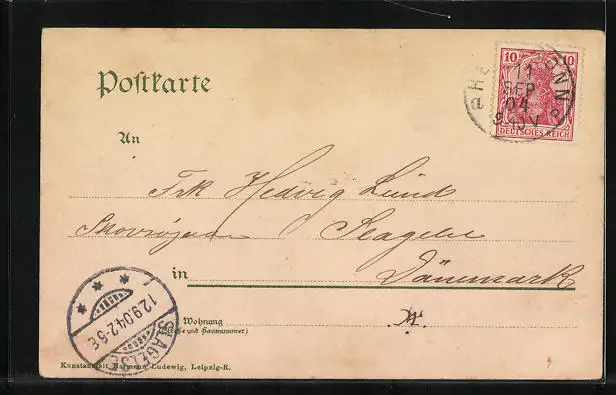 Postkarte
10 10
11
SEP
04
9-10 V
DEUTSCHES REICH
An
Frk Hedvig Lund
Skovvejen Slagelse
in Dänemark
Wohnung
(Straße und Hausnummer)
12.9.04 2-5 E
SLAGELSE
Kunstanstalt Hermann Ludewig, Leipzig-R.